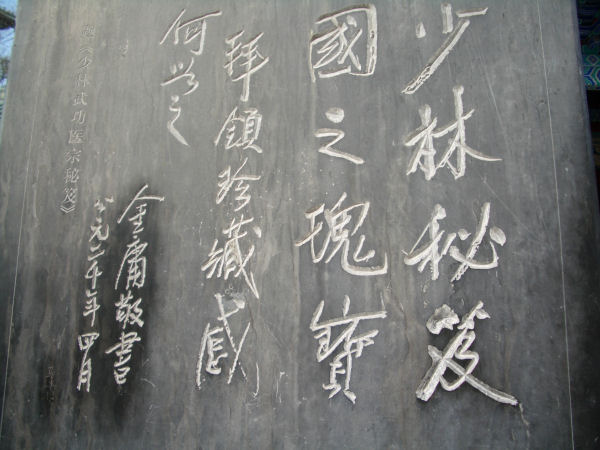 少林秘笈
國之瑰寶
拜領珍藏感
何如之
金庸敬書
公元二千年四月
《少林武功医宗秘笈》